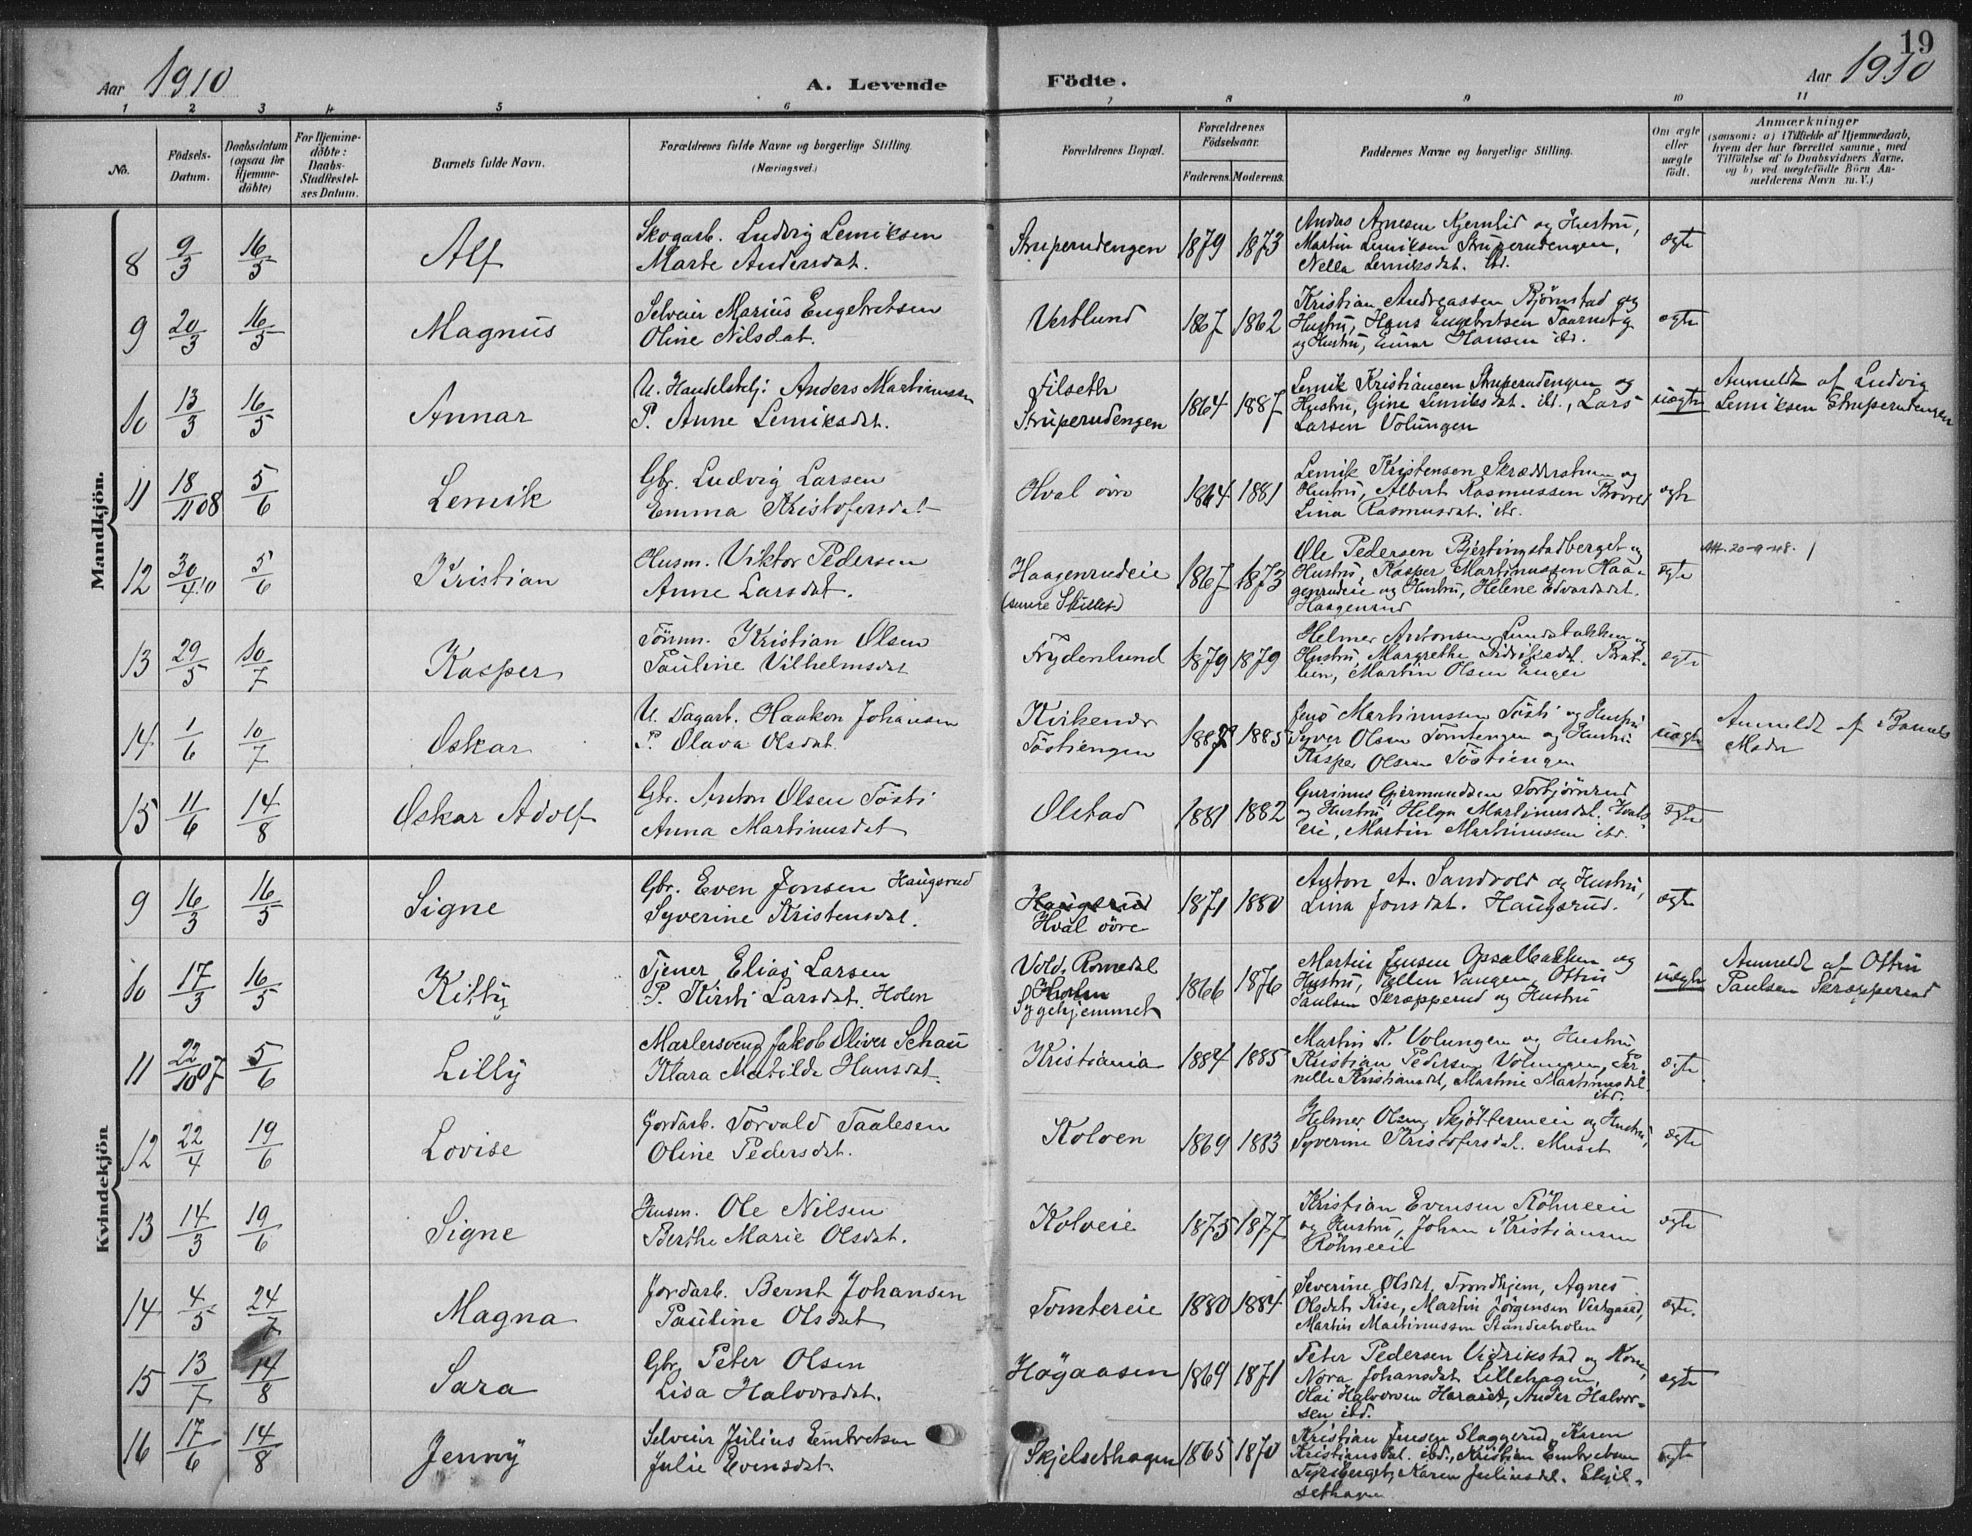 19
Aar 1910
A. Levende
Födte.
Aar 1910
1 2 3 4 5 6 7 8 9 10 11
No.
Födsels-Datum.
Daabsdatum (ogsaa for Hjemmedöbte)
For Hjemmedöbte: Daabs-Stadfæstelses Datum.
Barnets fulde Navn.
Forældrenes fulde Navne og borgerlige Stilling.
(Næringsvei.)
Forældrenes Bopæl.
Forældrenes Födselsaar.
Faderens. Moderens.
Faddernes Navne og borgerlige Stilling.
Om ægte eller uægte födt.
Anmærkninger
(saasom: a) i Tilfælde af Hjemmedaab, hvem der har forrettet samme, med Tilföielse af to Daabsvidners Navne, og b) ved uægtefödte Börn Anmelderens Navn m. V.)
Mandkjön.
8 9/3 16/5 Alf
Skogarb. Ludvig Lemiksen
Marte Andersdat.
Struperudengen 1879 1873
Njernlid og Hustru,
Martin Lemiksen Struperudengen,
Nella Lemiksdat. ibd.
ægte
9 20/3 16/5 Magnus
Selveier Marius Engebretsen
Oline Nilsdat.
Vestlund 1867 1862
Kristian Andreassen Bjørnstad og
Hustru, Hans Engebretsen
og Hustru, Einar Hansen ibd.
ægte
10 13/3 16/5 Annar
U. Handelsbetj. Anders Martinussen
P. Anne Lemiksdat.
Filseth
Struperudengen 1864 1887
Lemik Kristiansen Struperudengen og
Hustru, Gine Lemiksdat. ibd., Lars
Larsen Volungen
uægte
Anmeldt af Ludvig
Lemiksen Struperudengen
11 18/11 08 5/6 Lemik
Gbr. Ludvig Larsen
Emma Kristofersdat
Hval övre 1864 1881
Lemik Kristensen Skrædderstuen og
Hustru, Albert Rasmussen
Lina Rasmusdat. ibd.
ægte
12 30/4 10 5/6 Kristian
Husm. Viktor Pedersen
Anne Larsdat.
Haagenrudeie
(søndre Skillet) 1867 1873
Ole Pedersen Bjertingstadberget og
Hustru, Kasper Martinussen Haa-
genrudeie og Hustru, Helene Edvardsdat.
Haagenrud
ægte
Att. 20-9-48.
13 29/5 10/7 Kasper
Tömm. Kristian Olsen
Pauline Vilhelmsdat
Frydenlund 1879 1879
Helmer Antonsen Lundsbakken og
Hustru, Margrethe Didriksdat.
Martin Olsen Enger
ægte
14 1/6 10/7 Oskar
U. Dagarb. Haakon Johansen
P. Olava Olsdat.
Kirkenær
Töstiengen 1887 1885
Jens Martinussen Tösti og Hustru
Syver Olsen Tomtengen og Hustru
Kasper Olsen Töstiengen
uægte
Anmeldt af Barnets
Moder
15 11/6 14/8 Oskar Adolf
Gbr. Anton Olsen Tösti
Anna Martinusdat
Olstad 1881 1882
Gurinus Gjermundsen Torbjörnrud
og Hustru, Helga Martinusdat. Hvals-
eie, Martin Martinussen ibd.
ægte
Kvindekjön
9 16/3 16/5 Signe
Gbr. Even Jonsen Haugsrud
Syverine Kristensdat.
Haugsrud
Hval övre 1871 1880
Anton A. Sandvold og Hustru,
Lina Jonsdat. Haugsrud.
ægte
10 17/3 16/5 Kitty
Tjener Elias Larsen
P. Kirsti Larsdat. Holen
Vold, Romedal
Holen
Sygehjemmet 1866 1876
Martin Jensen Opsalbakken og
Hustru, Ellen Vangen, Ottin
Paulsen Skræpperud og Hustru
uægte
Anmeldt af Ottin
Paulsen Skræpperud
11 22/10 07 5/6 Lilly
Malersvend Jakob Oliver Schau
Klara Matilde Hansdat.
Kristiania 1884 1885
Martin K. Volungen og Hustru
Kristian Pedersen Volungen, Per-
nelle Kristiansdat, Martine Martinusdat.
ibd.
ægte
12 22/4 19/6 Lovise
Jordarb. Torvald Taalesen
Oline Pedersdat.
Kolven 1869 1883
Helmer Olsen og Hustru,
Syverine Kristofersdat. Muset
ægte
13 14/3 19/6 Signe
Husm. Ole Nilsen
Berthe Marie Olsdat.
Kolveie 1875 1877
Kristian Evensen Röhneeie
og Hustru, Johan Kristiansen
Röhneeie
ægte
14 4/5 24/7 Magna
Jordarb. Bernt Johansen
Pauline Olsdat
Tomtereie 1880 1884
Severine Olsdat, Trondhjem, Agnes
Olsdat Rise, Martin Jörgensen Vestgaard,
Martin Martinussen
ægte.
15 13/7 14/8 Sara
Gbr. Peter Olsen
Lisa Halvorsdat.
Högaasen 1869 1871
Peter Pedersen Vidrikstad og Kone,
Nora Johansdat Lillehagen,
Olai Halvorsen Hararset, Ander Halvor-
sen ibd.
ægte
16 17/6 14/8 Jenny
Selveier Julius Embretsen
Julie Evensdat.
Skjelsethagen 1865 1870
Kristian Jensen Slaggerud, Karen
Kristiansdat. ibd., Kristian Embretsen
Tyriberget, Karen Juliusdat. Skjel-
sethagen
ægte